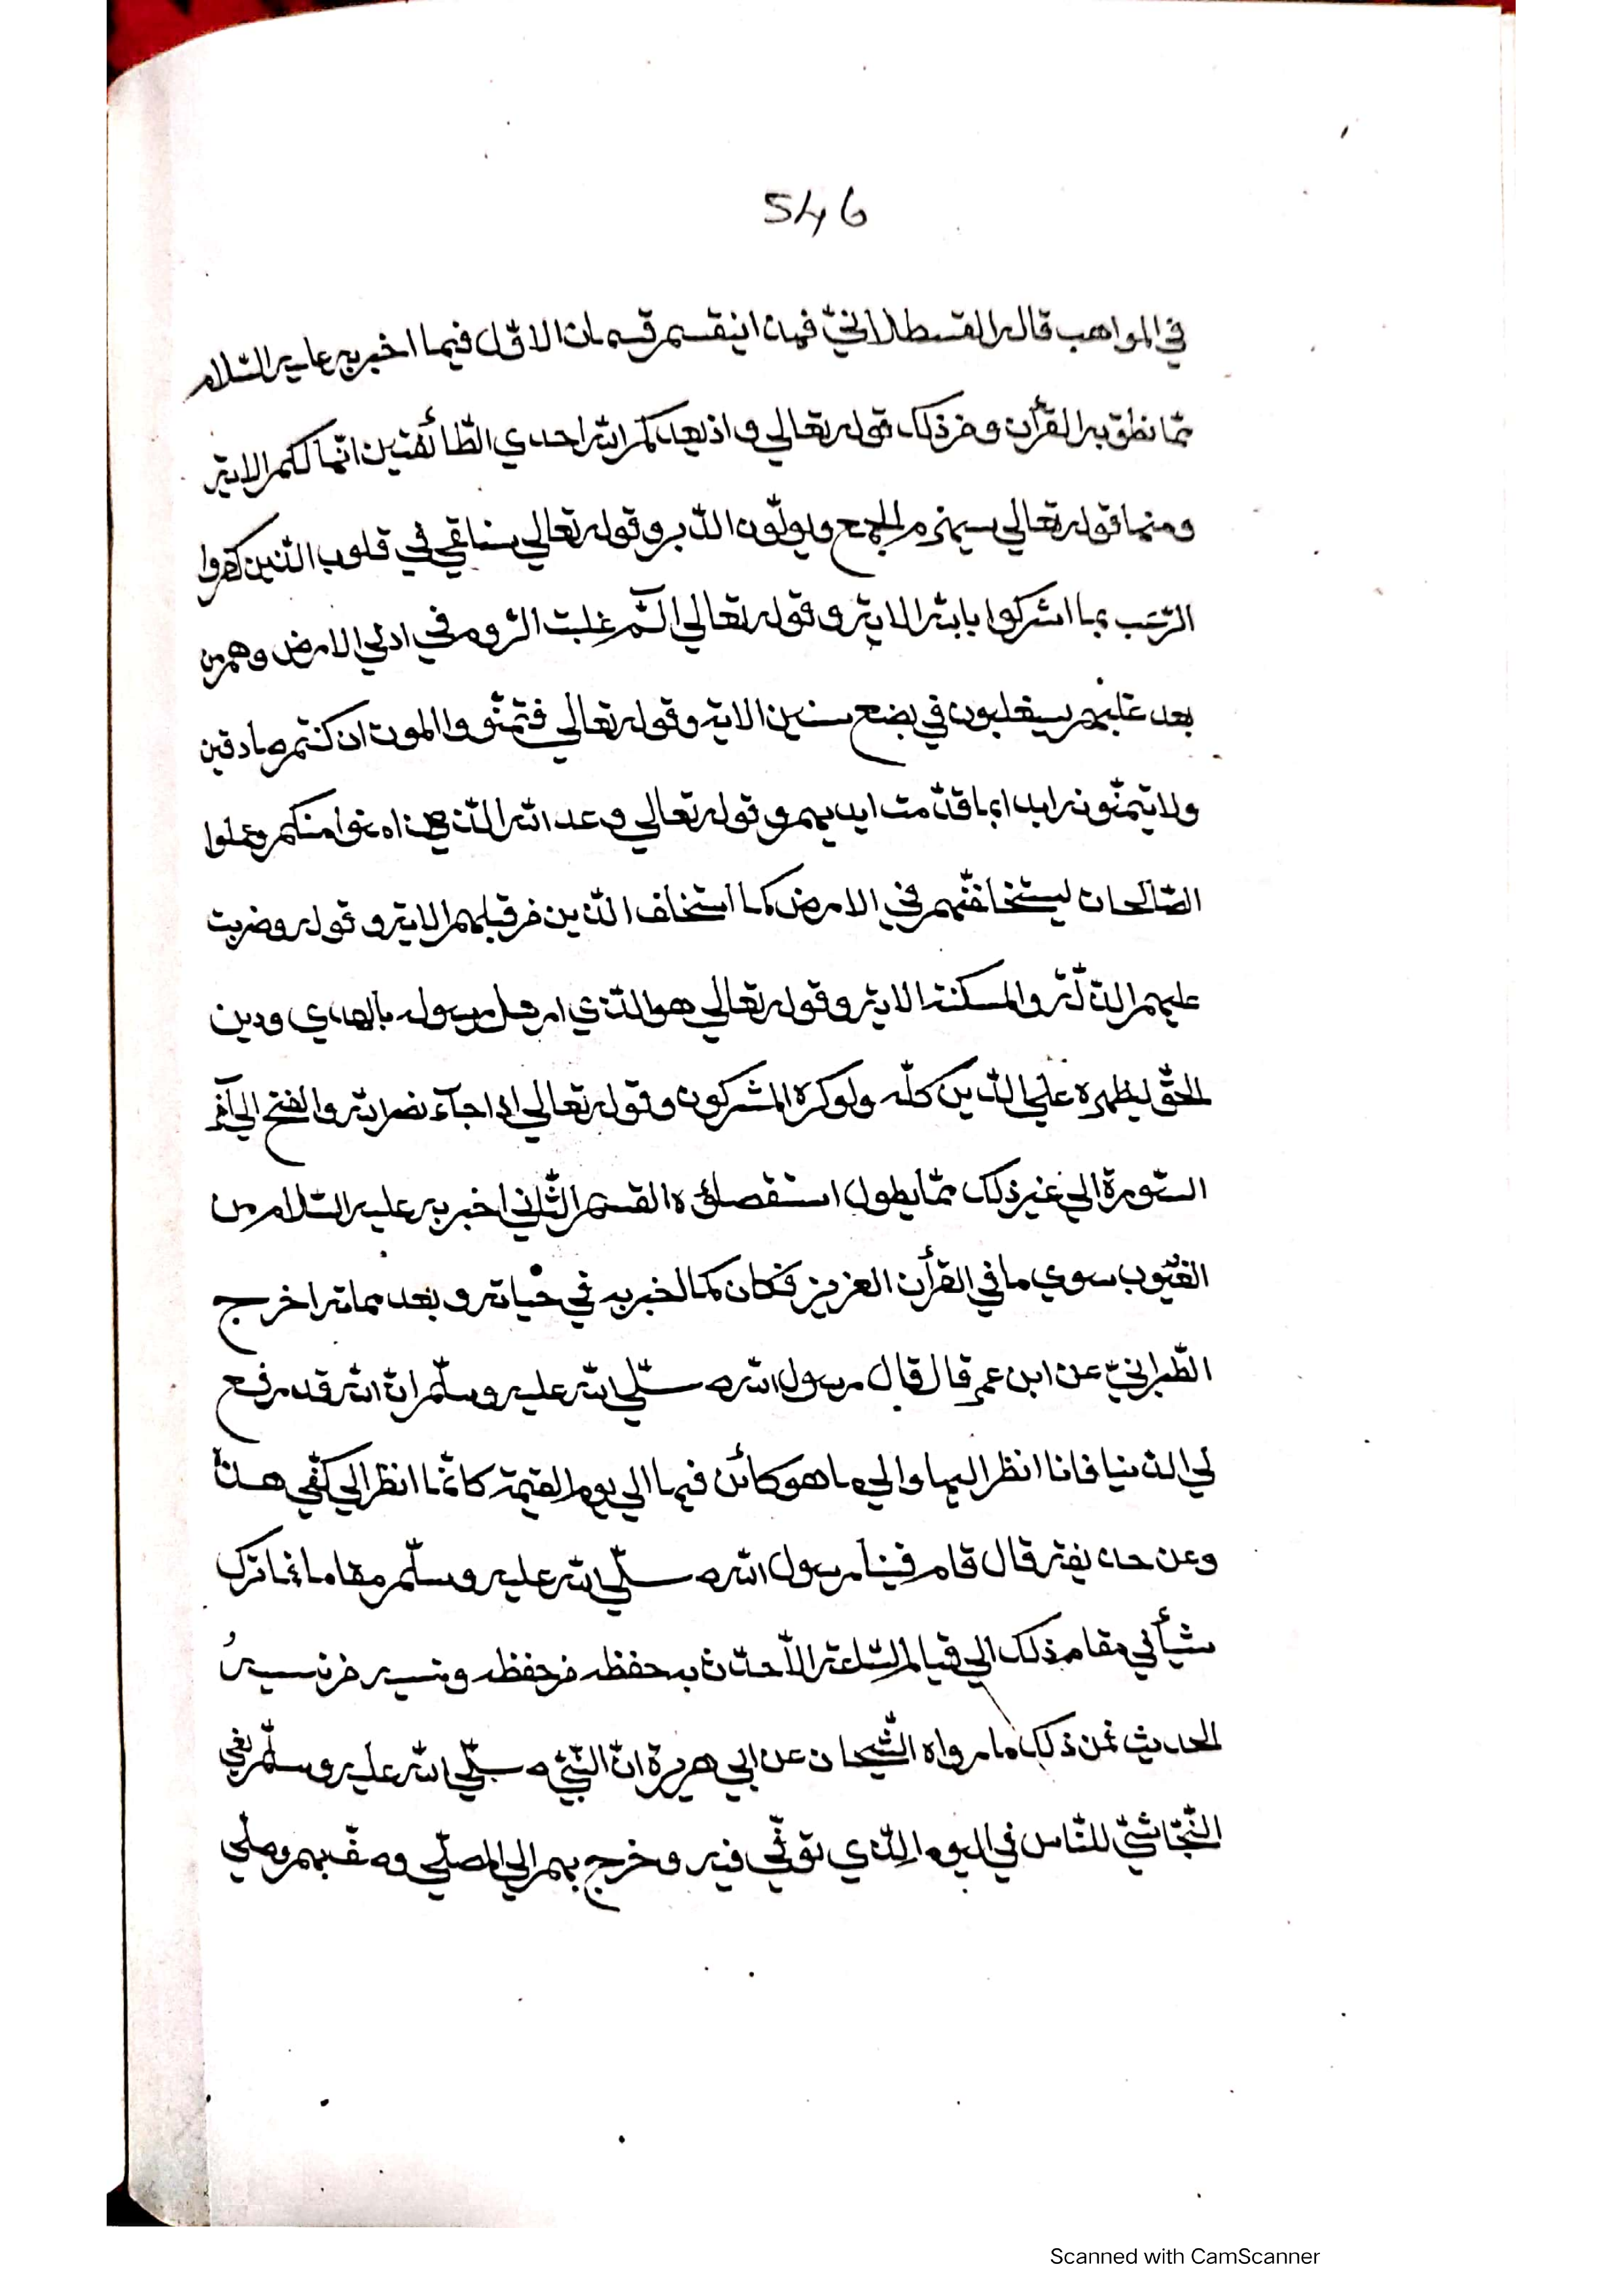 546
في المواهب قاله القسطلانيّ فهذا ينقسم قسمان الاوّل فيما اخبر به عليه السّلام
ممّا نطق به القرأن ومن ذلك قوله تعالي واذ يعدكم الله احدي الطّائفتين انّها لكم الاية
ومنها قوله تعالي سيهزم الجمع ويولّون الدّبر وقوله تعالي سنلقي في قلوب الّذين كفروا
الرّعب بما اشركوا بالله الاية وقوله تعالي الٓمّ غلبت الرّوم في ادني الارض وهم من
بعد غلبهم سيغلبون في بضع سنين الاية وقوله تعالي فتمنّووا الموت ان كنتم صادقين
ولا يتمنّونه ابدا بما قدّمت ايديهم وقوله تعالي وعد الله الّذين امنوا منكم وعملوا
الصّالحات ليستخلفنّهم في الارض كما استخلف الّذين من قبلهم الاية وقوله وضربت
عليهم الذّلّة والمسكنة الاية وقوله تعالي هو الّذي ارسل رسوله بالهدي ودين
الحقّ ليظهره علي الدّين كلّه ولو كره المشركون وقوله تعالي اذا جآء نصر الله والفتح الي آخر
السّورة الي غير ذلك ممّا يطول استقصاؤه القسم الثّاني اخبر به عليه السّلام من
الغيوب سوي ما في القرأن العزيز فكان كما اخبر به في حياته وبعد مماته اخرج
الطّبرانيّ عن ابن عمر قال قال رسول الله صلّي الله عليه وسلّم انّ الله قد رفع
لي الدّنيا فانا انظر اليها والي ما هو كائن فيها الي يوم القيمة كانّما انظر الي كفّي هذا
وعن حذيفة قال قام فينا رسول الله صلّي الله عليه وسلّم مقاما فما ترك
شيأ في مقامه ذلك الي قيام السّاعة الاّ حدّث به حفظه من حفظه ونسيه من نسيه
الحديث فمن ذلك ما رواه الشّيخان عن ابي هريرة انّ النّبيّ صلّي الله عليه وسلّم نعي
النّجاشيّ للنّاس في اليوم الّذي توفّي فيه وخرج بهم الي المصلّي وصفّ بهم وصلّي
Scanned with CamScanner